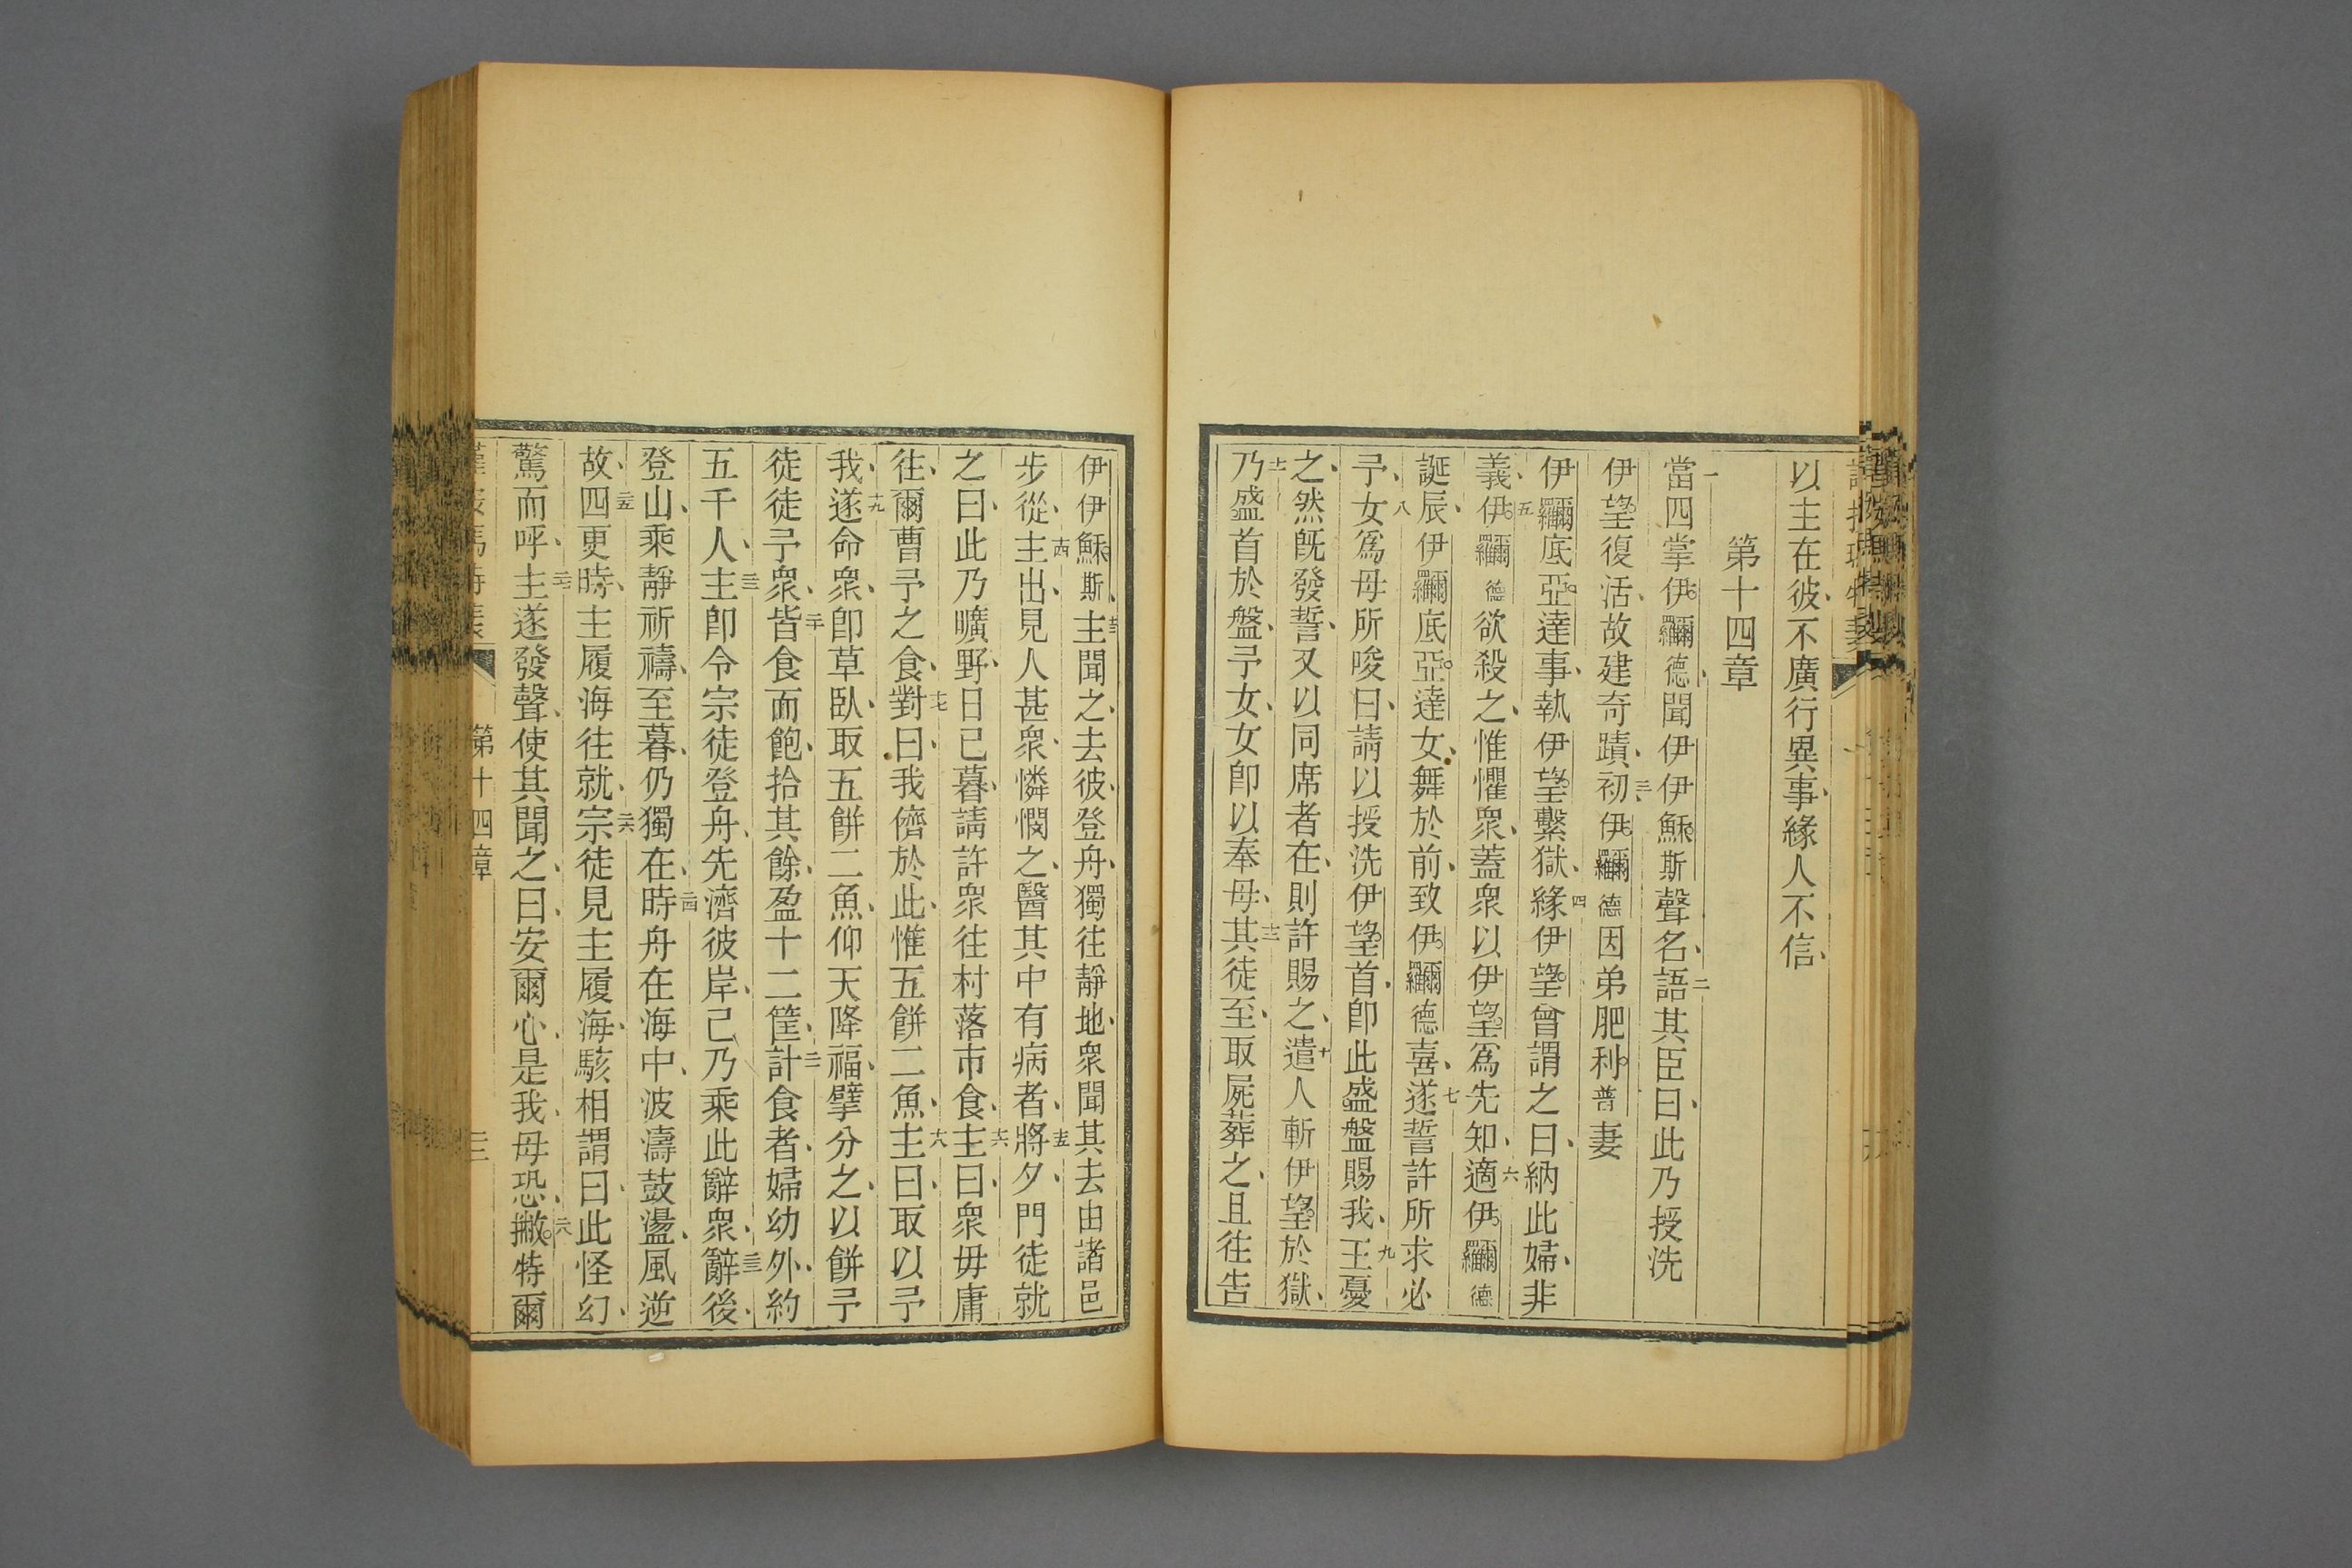 以主在彼、不廣行異事、緣人不信、
第十四章
一當四掌伊。囉爾德、聞伊伊穌。斯聲名、二語其臣曰、此乃授洗
伊望。復活、故建奇蹟、三初伊。囉爾德因弟肥利。普妻
伊囉爾底亞。達事、執伊望。繫獄、四緣伊望。曾謂之曰、納此婦、非
義、五伊。囉爾德欲殺之、惟懼衆、蓋衆以伊望。爲先知、六適伊。囉爾德
誕辰、伊囉爾底亞。達女、舞於前、致伊。囉爾德喜、七遂誓許所求必
予、八女爲母所唆曰、請以授洗伊望。首、卽此盛盤賜我、九王憂
之、然旣發誓、又以同席者在、則許賜之、十遣人斬伊望。於獄、
十一乃盛首於盤、予女、女卽以奉母、十二其徒至、取屍葬之、且往告
伊伊穌。斯、十三主聞之、去彼、登舟、獨往靜地、衆聞其去、由諸邑
步從、十四主出、見人甚衆、憐憫之、醫其中有病者、十五將夕、門徒就
之曰、此乃曠野、日已暮、請許衆往村落市食、十六主曰、衆毋庸
往、爾曹予之食、十七對曰、我儕於此、惟五餅二魚、十八主曰、取以予
我、十九遂命衆、卽草臥、取五餅二魚、仰天降福、擘分之、以餅予
徒、徒予衆、二十皆食而飽、拾其餘、盈十二筐、二一計食者、婦幼外、約
五千人、二二主卽令宗徒登舟、先濟彼岸、己乃乘此辭衆、二三辭後、
登山、乘靜祈禱、至暮、仍獨在、二四時舟在海中、波濤鼓盪、風逆
故、二五四更時、主履海往就、二六宗徒見主履海、駭相謂曰、此怪幻、
驚而呼、二七主遂發聲、使其聞之、曰、安爾心、是我、毋恐、二八撇。特爾
第十四章